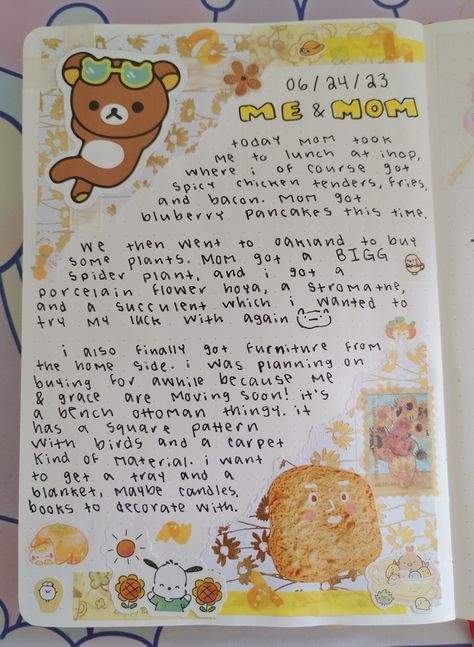 06/24/23
ME & MOM
today mom took
me to lunch at ihop,
where i of course got
spicy chicken tenders, fries,
and bacon. mom got
bluberry pancakes this time.
we then went to oakland to buy
some plants. mom got a BIGG
spider plant, and i got a
porcelain flower hoya, a stromathe,
and a succulent which i wanted to
try my luck with again
i also finally got furniture from
the home side. i was planning on
buying for awhile because me
& grace are moving soon! it's
a bench ottoman thingy. it
has a square pattern
with birds and a carpet
kind of material. i want
to get a tray and a
blanket, maybe candles,
books to decorate with.